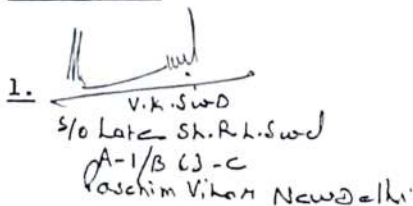 1.
V.K. Sood
S/o Late Sh. R.L. Sood
A-1/B 63-C
Paschim Vihar New Delhi